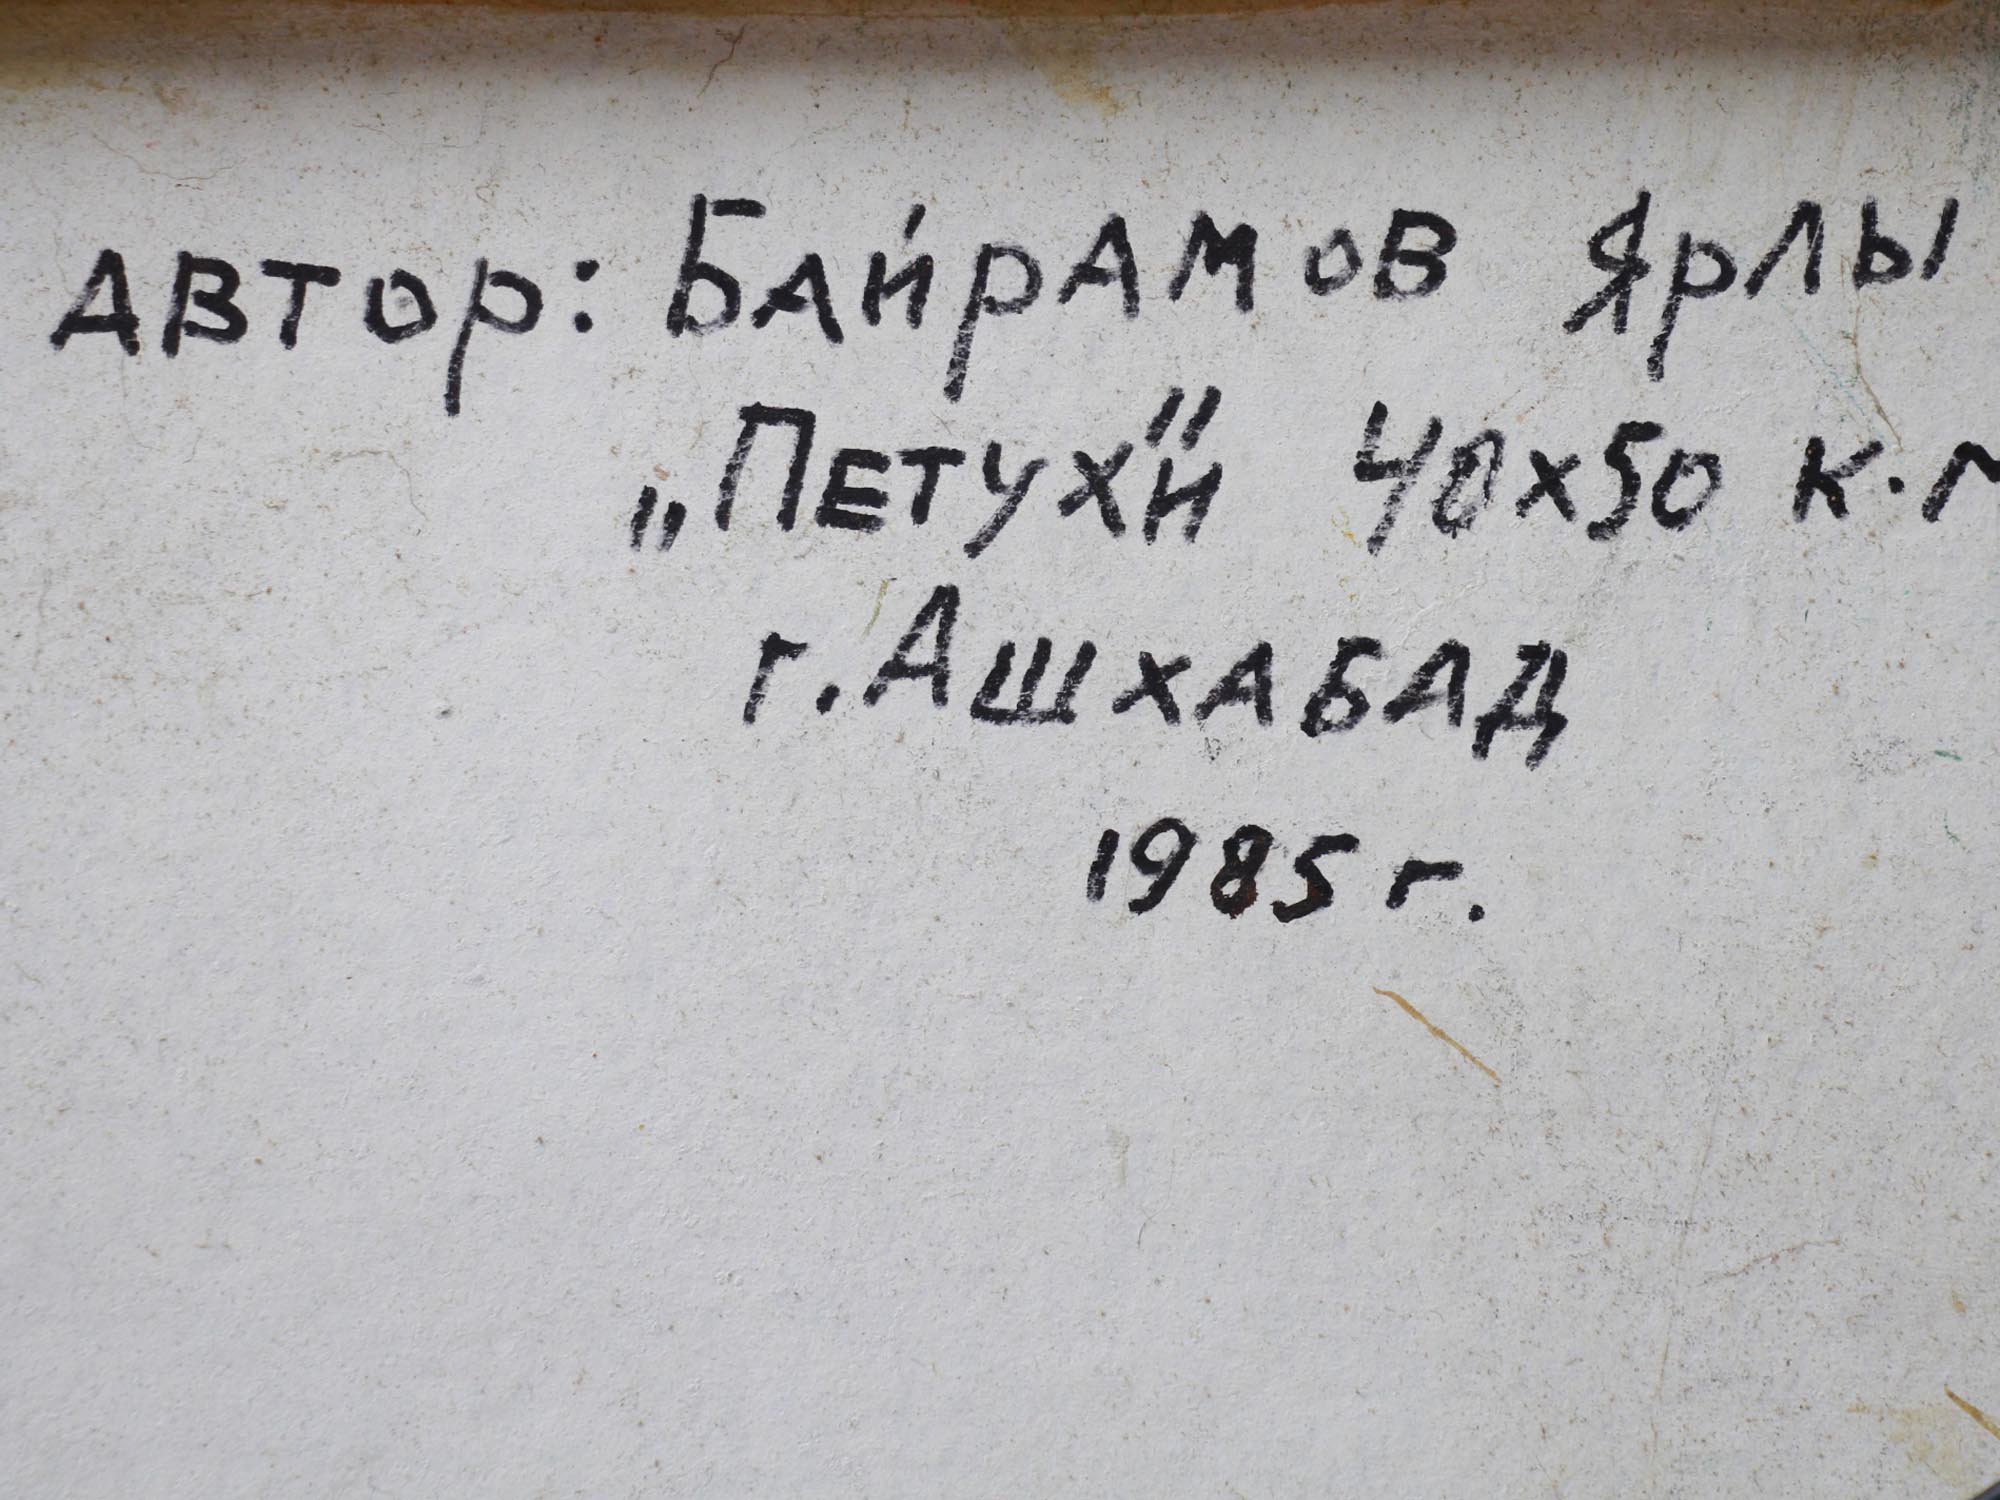 Автор: Байрамов Ярлы
„Петухи" 40х50 к.м
г. Ашхабад
1985 г.